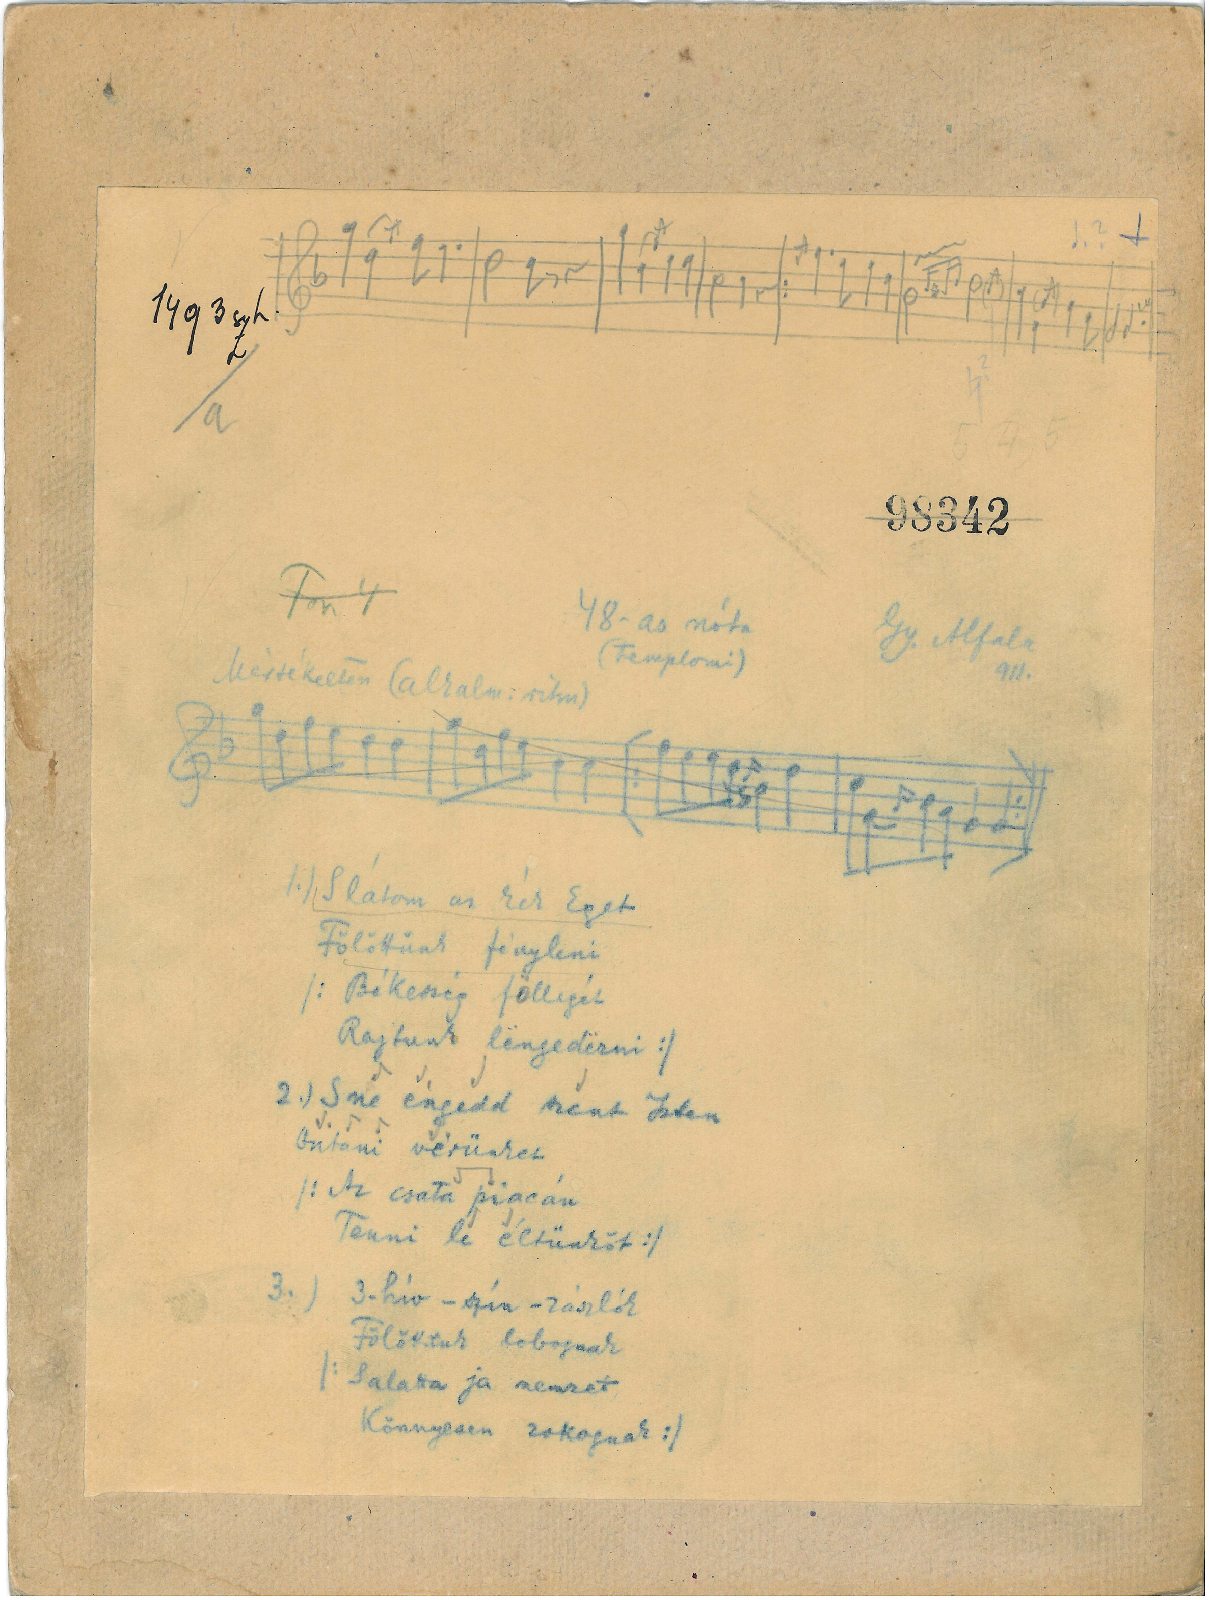 1493 sz/h.
a
4?
5 4 5
98342
Fon 4
48-as nóta
(templomi)
Gy. Alfalu
911.
Mérsékelten (alkalm: ritm)
1.) S látom az kék Eget
Fölöttünk fényleni
/: Békesség föllegét
Rajtunk lëngedëzni :/
2.) S në engedd szent Isten
Ontani vérünket
/: Az csata piacán
Tenni le éltünköt :/
3.) 3-hiv-szín-zászlók
Fölöttük lobognak
/: Salatta ja nemzet
Könnyesen zokognak :/